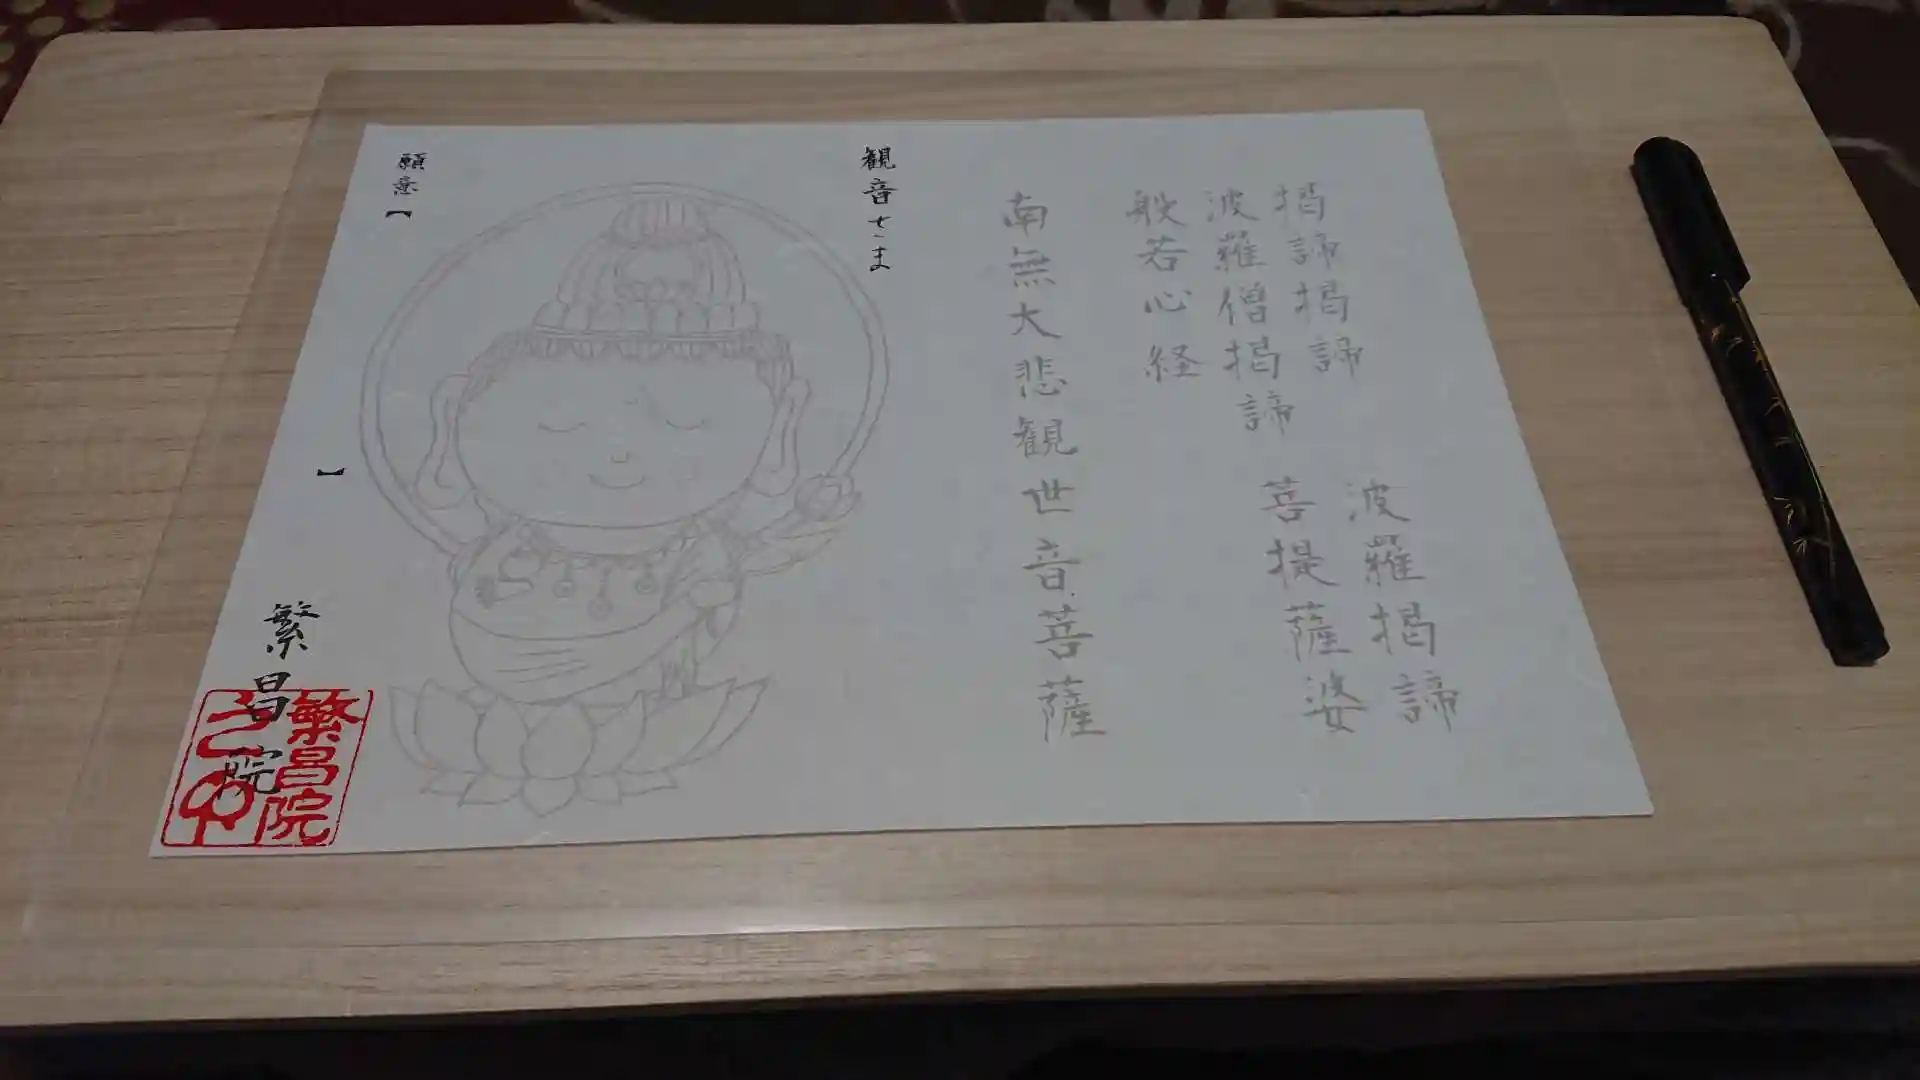 掲諦掲諦 波羅掲諦
波羅僧掲諦 菩提薩婆
般若心経
南無大悲観世音菩薩
観音さま
願意【 】
繁昌院
繁昌院